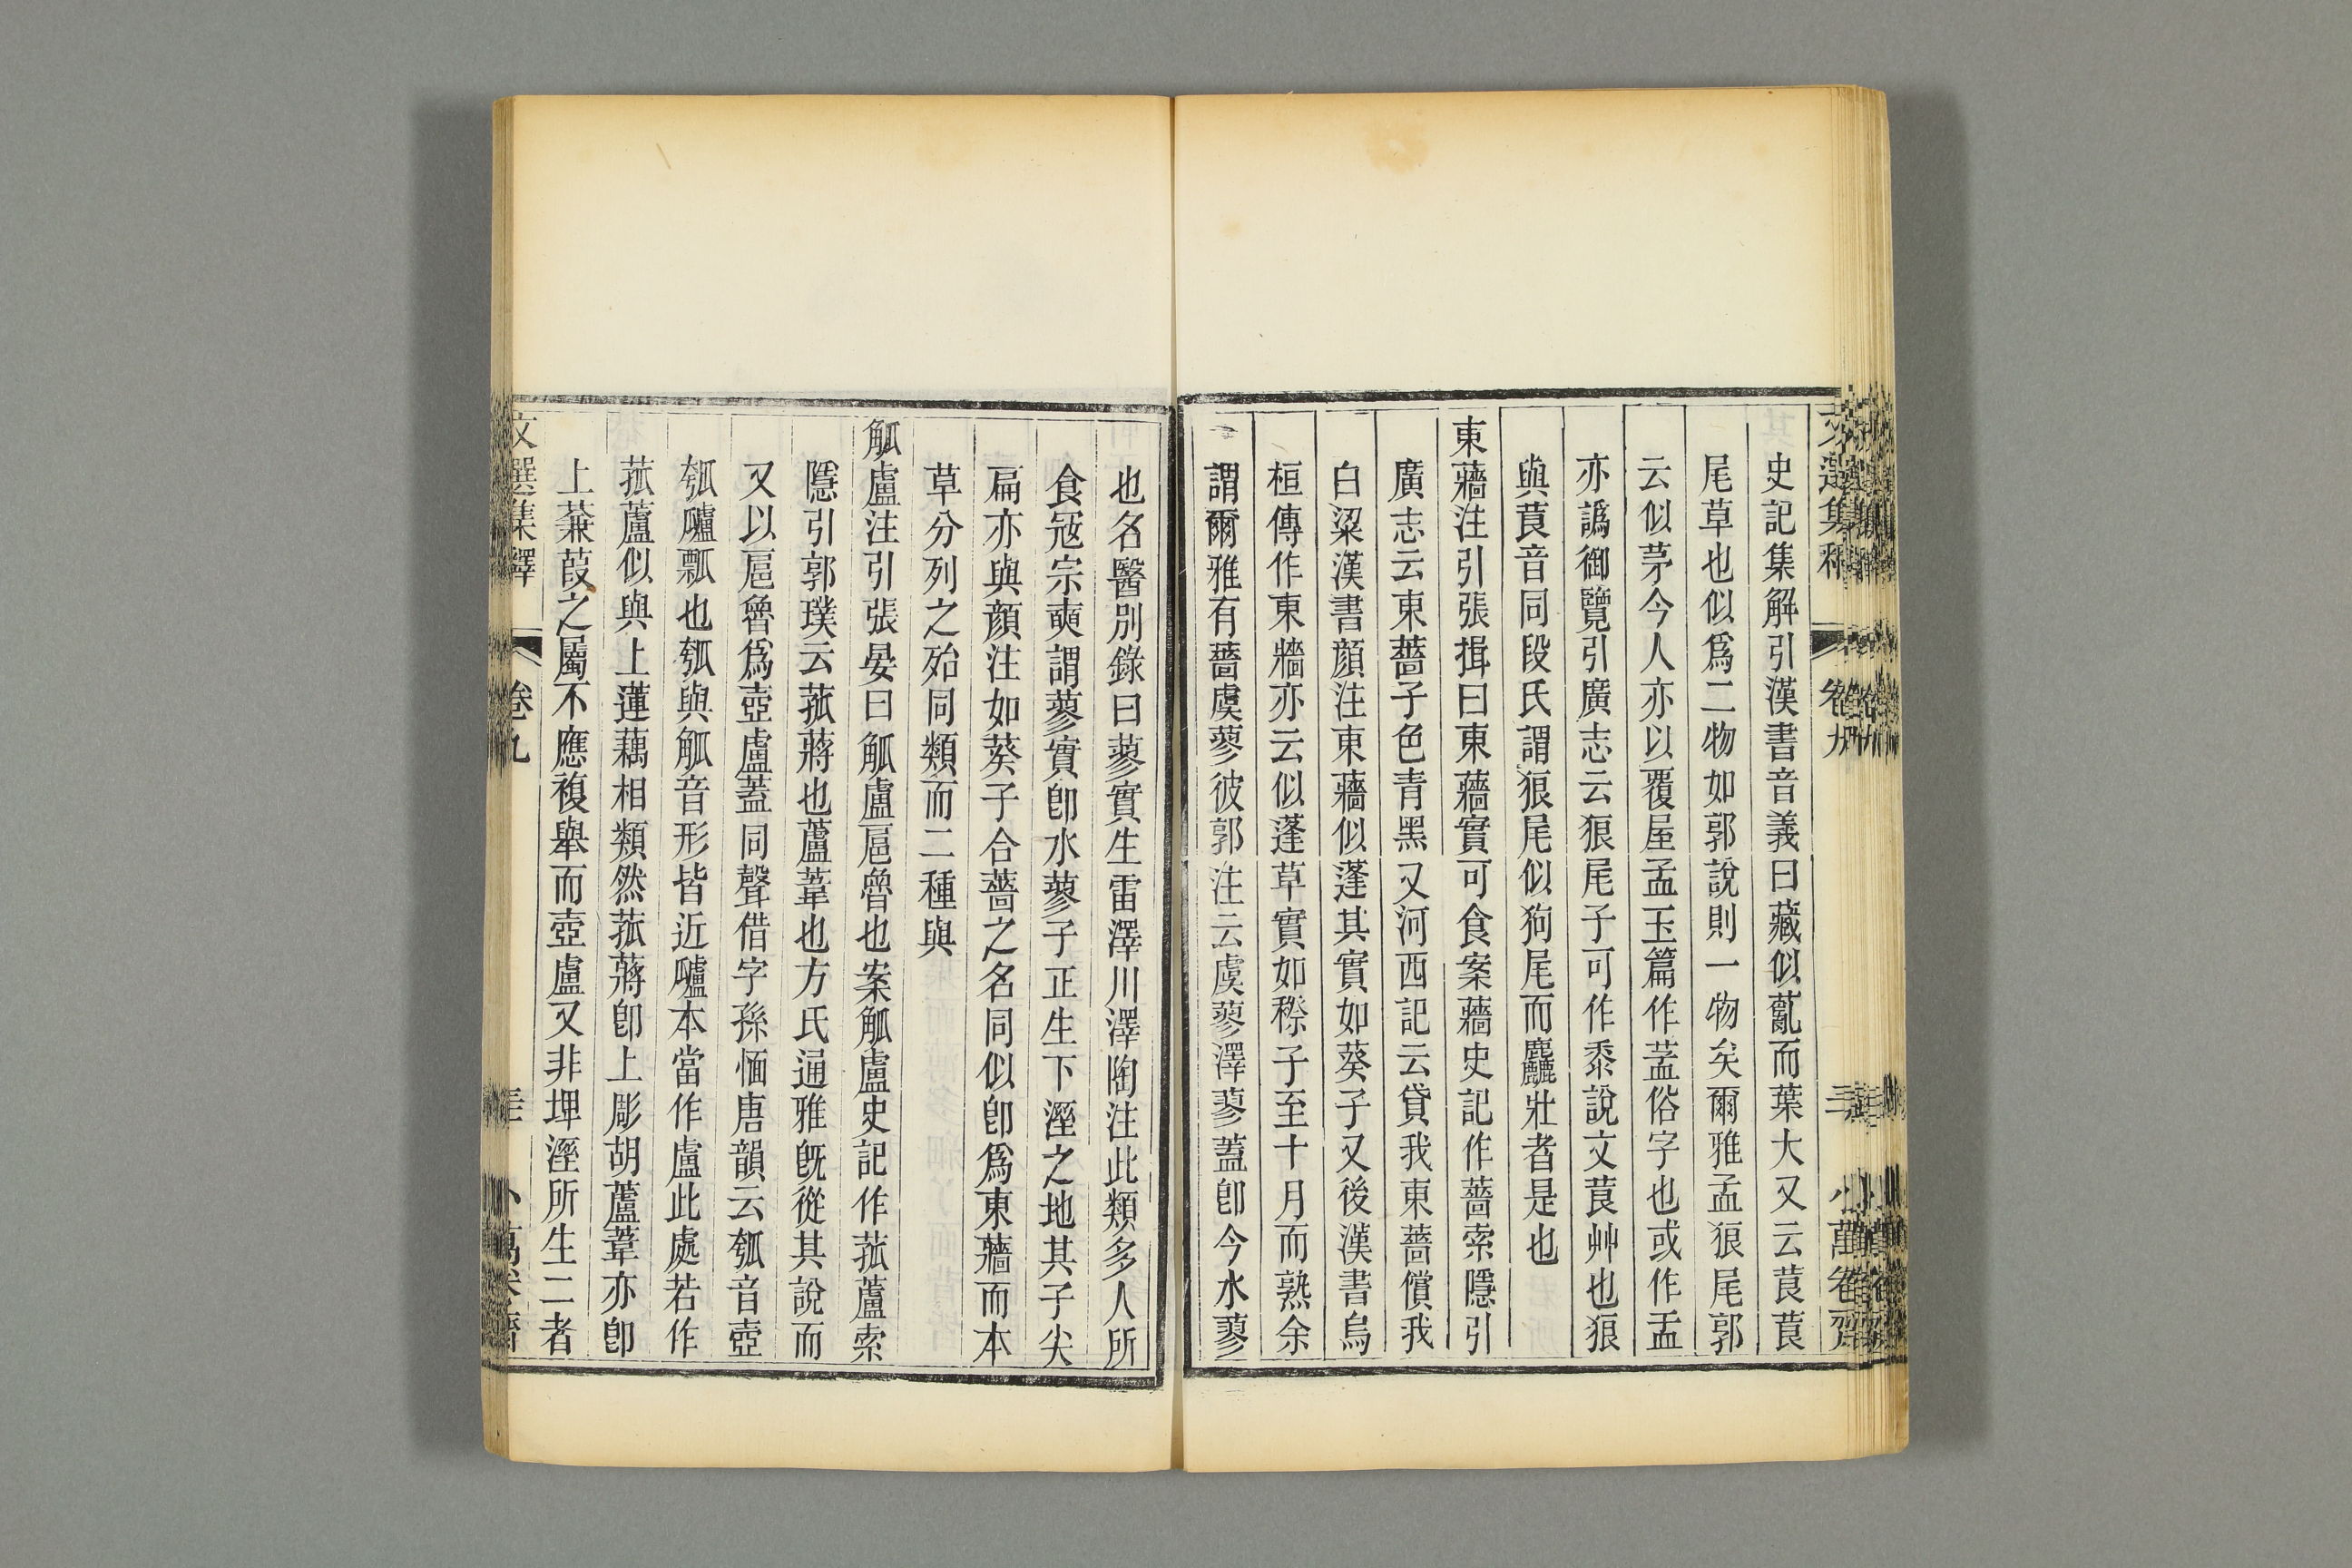 史記集解引漢書音義曰藏似薍而葉大又云莨莨
尾草也似爲二物如郭說則一物矣爾雅孟狼尾郭
云似茅今人亦以覆屋孟玉篇作䓝俗字也或作盂
亦譌御覽引廣志云狼尾子可作黍說文莨艸也狼
與莨音同段氏謂狼尾似狗尾而麤壯者是也
東蘠注引張揖曰東蘠實可食案蘠史記作薔索隱引
廣志云東薔子色青黑又河西記云貸我東薔償我
白粱漢書顔注東蘠似蓬其實如葵子又後漢書烏
桓傳作東牆亦云似蓬草實如穄子至十月而熟余
謂爾雅有薔虞蓼彼郭注云虞蓼澤蓼蓋卽今水蓼
也名醫別錄曰蓼實生雷澤川澤陶注此類多人所
食冦宗奭謂蓼實卽水蓼子正生下溼之地其子尖
扁亦與顔注如葵子合薔之名同似卽爲東蘠而本
草分列之殆同類而二種與
觚盧注引張晏曰觚盧扈魯也案觚盧史記作菰蘆索
隱引郭璞云菰蔣也蘆葦也方氏通雅旣從其說而
又以扈魯爲壺盧蓋同聲借字孫愐唐韻云瓠音壺
瓠㽍瓢也瓠與觚音形皆近㽍本當作盧此處若作
菰蘆似與上蓮藕相類然菰蔣卽上彫胡蘆葦亦卽
上蒹葭之屬不應複舉而壺盧又非埤溼所生二者
文選集釋 卷九